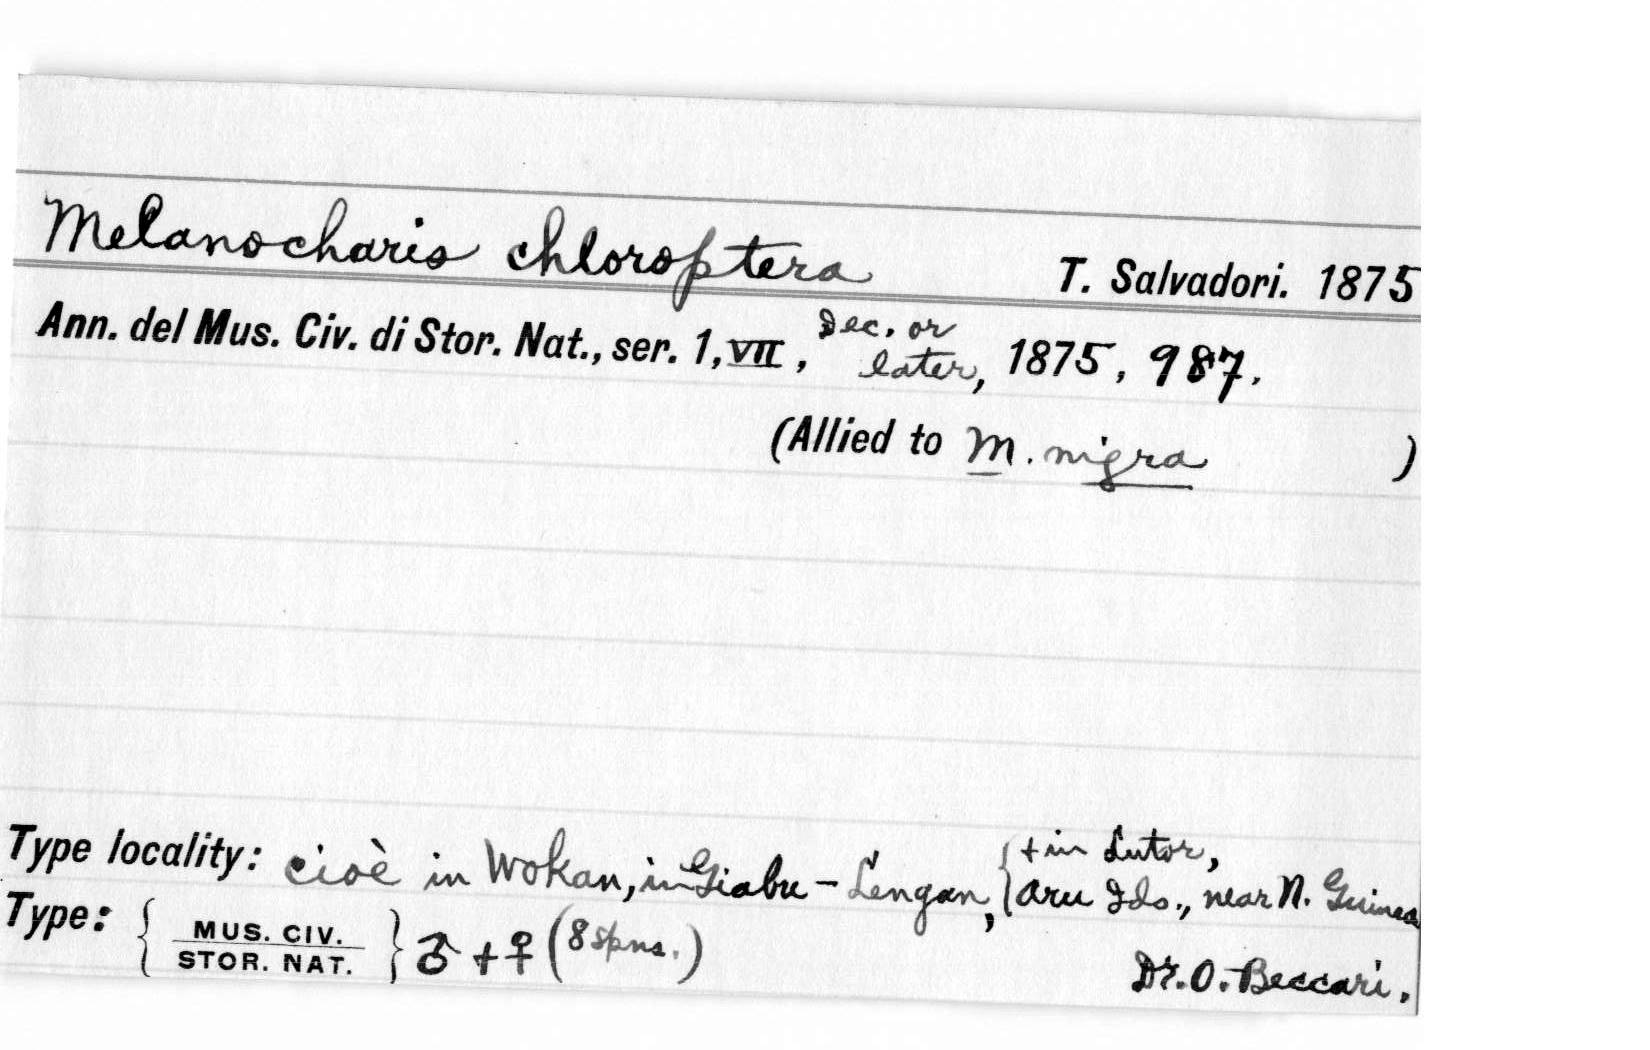 Melanocharis chloroptera T. Salvadori. 1875
Ann. del Mus. Civ. di Stor. Nat., ser. 1, VII, Dec. or later, 1875, 987.
(Allied to M. nigra )
Type locality: cioè in Wokan, in Giabu-Lengan, { + in Lutor,
Aru Ids., near N. Guinea
Type: { MUS. CIV.
STOR. NAT. } ♂ + ♀ (8 spns.)
Dr. O. Beccari.